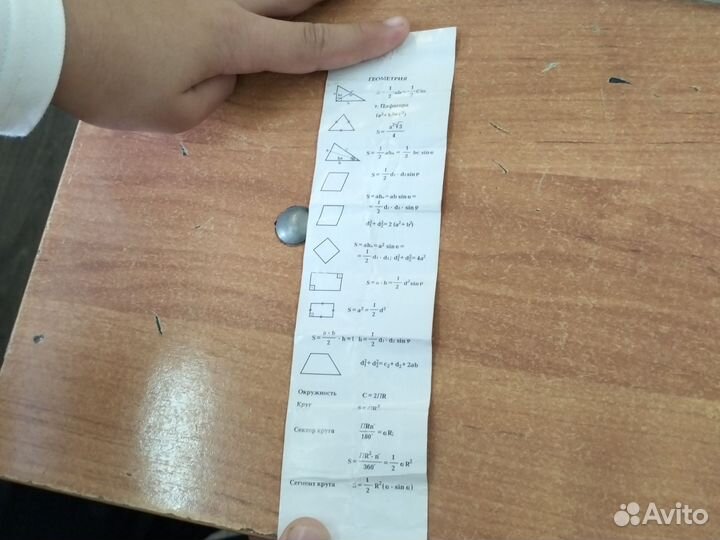 ГЕОМЕТРИЯ
т. Пифагора
S = a²√3 / 4
S = 1/2 ahₐ = 1/2 bc sin α
S = 1/2 d₁ · d₂ sin φ
S = ahₐ = ab sin α =
= 1/2 d₁ · d₂ · sin φ
d₁² + d₂² = 2 (a² + b²)
S = ahₐ = a² sin α =
= 1/2 d₁ · d₂; d₁² + d₂² = 4a²
S = a · b = 1/2 d² sin φ
S = a² = 1/2 d²
1/2 d₁ · d₂ sin φ
d₁² + d₂² = c₂ + d₂ + 2ab
Окружность C = 2ПR
Круг
Сектор круга ПRn° / 180° = αR;
S = ПR² · n° / 360° = 1/2 αR²
Сегмент круга S = 1/2 R² (α - sin α)
Avito